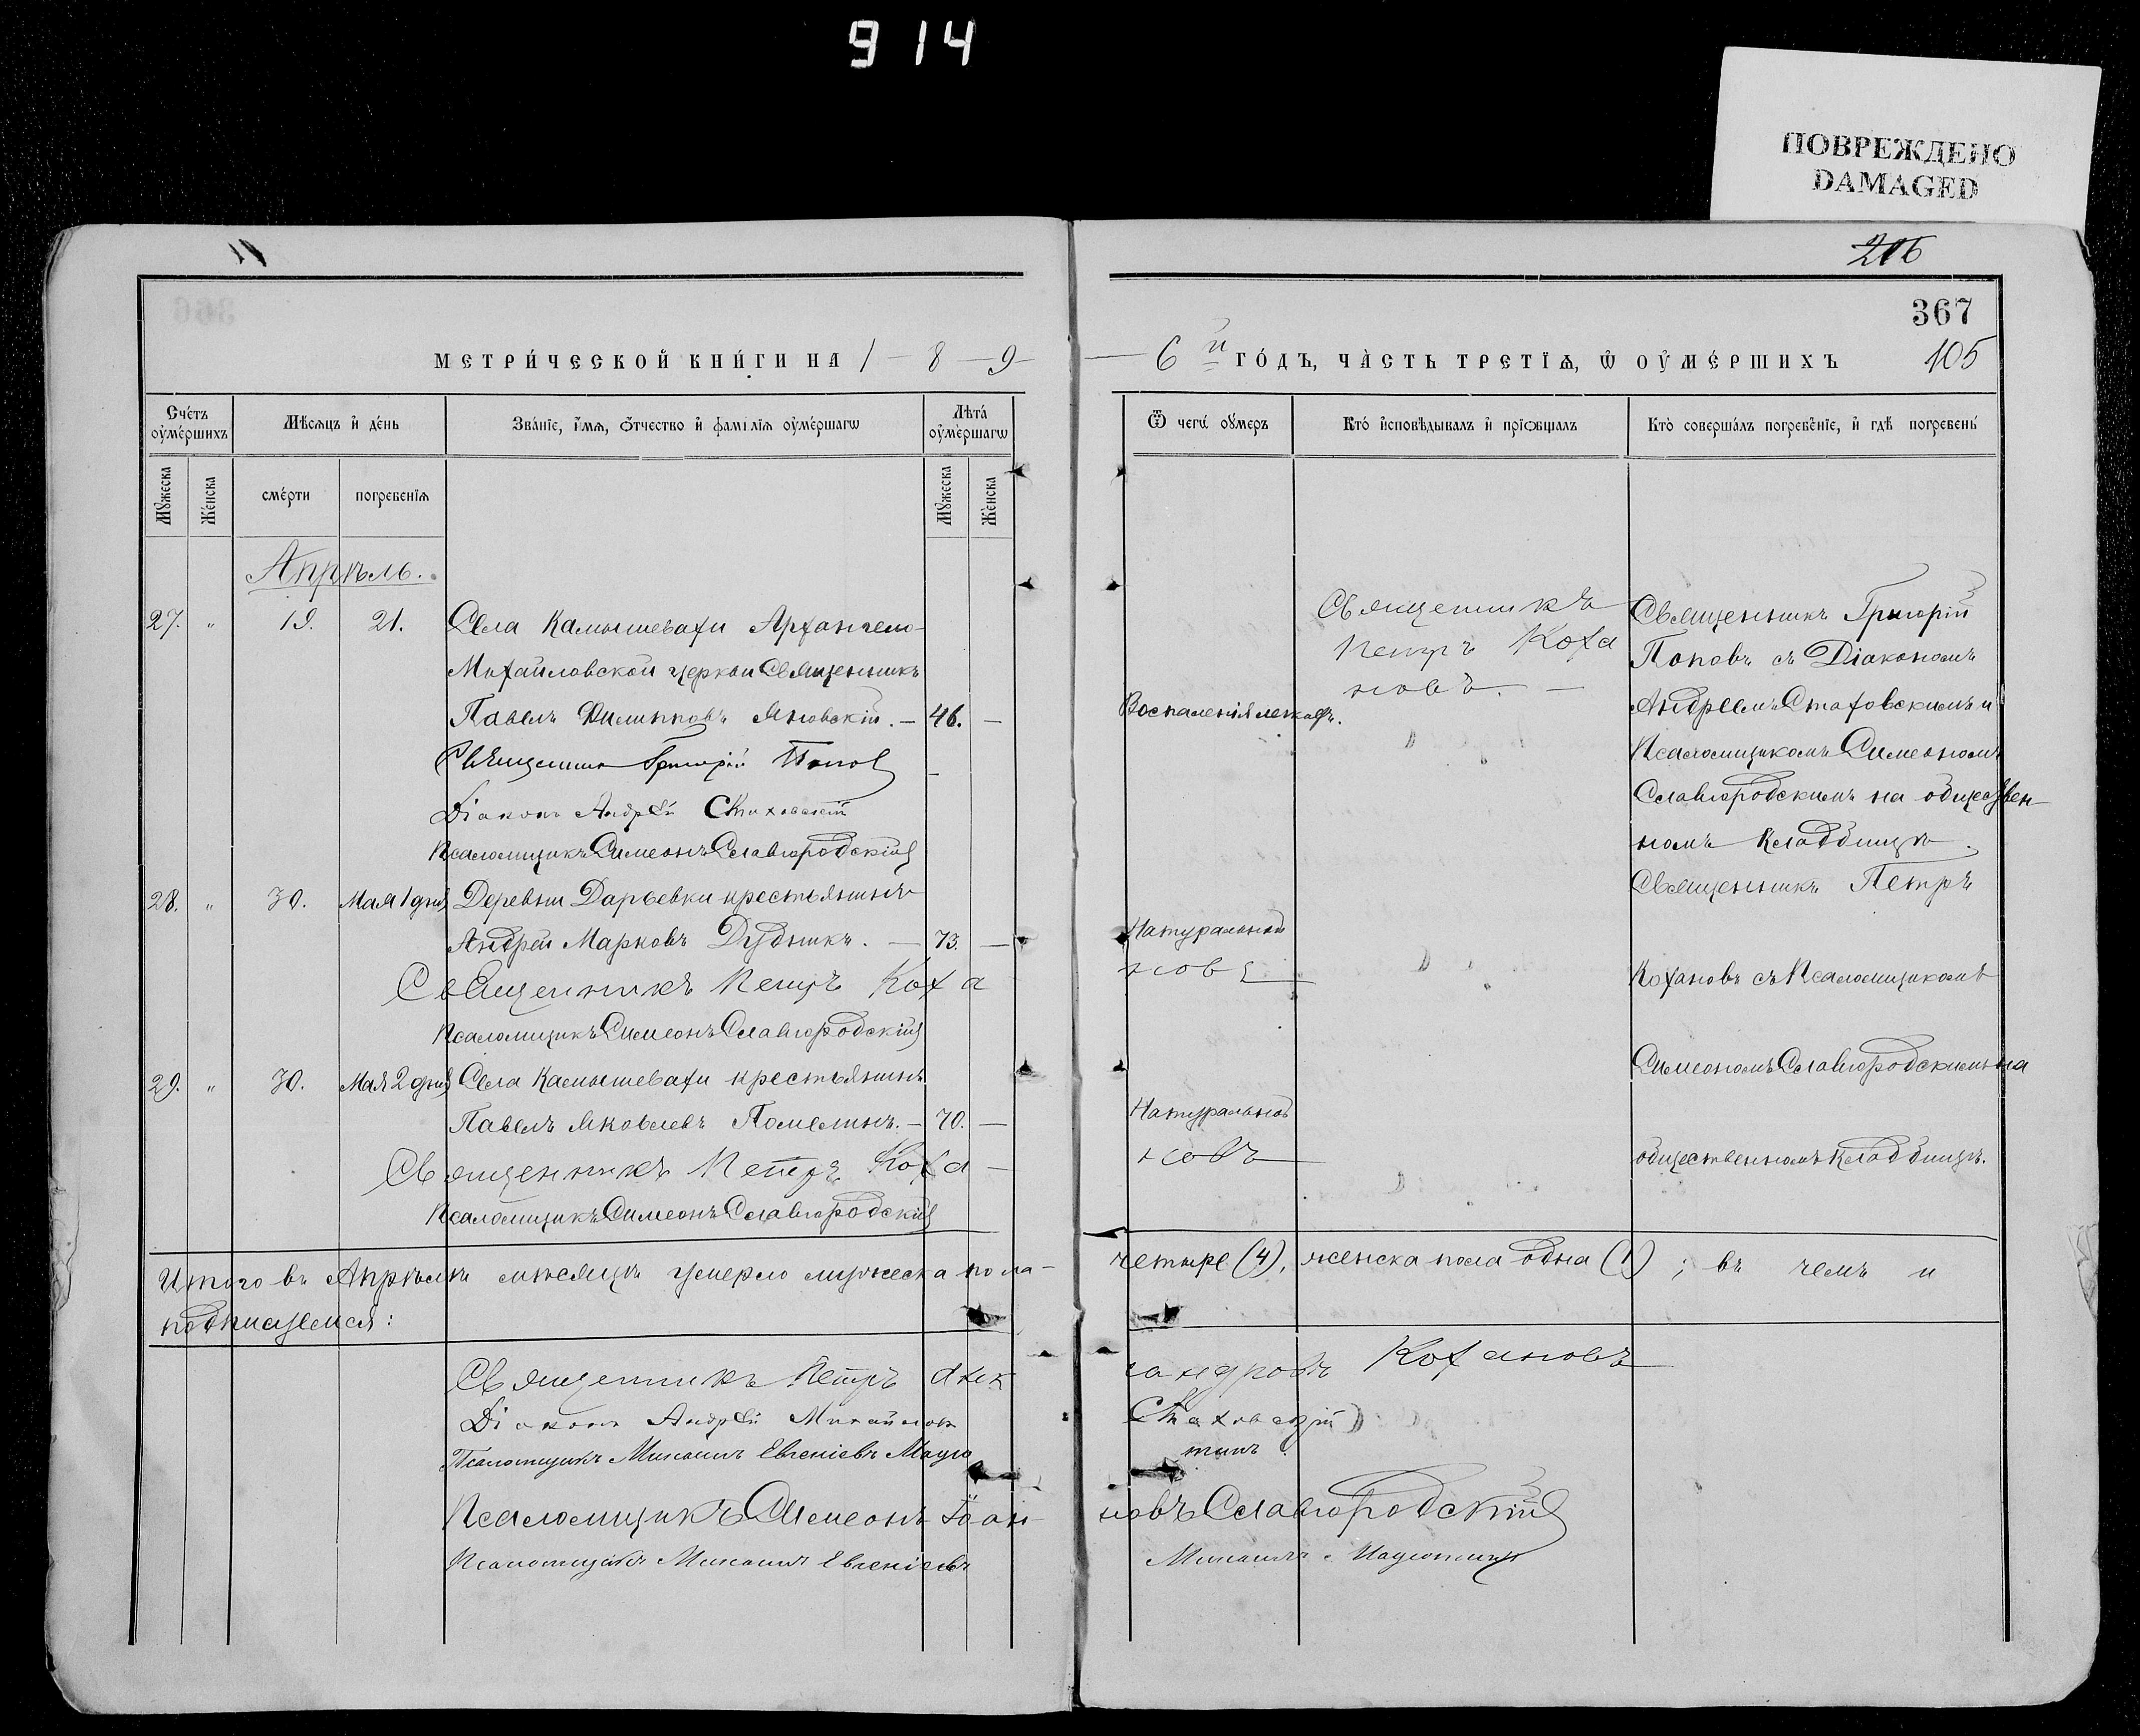 914
ПОВРЕЖДЕНО
DAMAGED
206
367
МЕТРИ́ЧЕСКОЙ КНИ́ГИ НА 1-8-9-
-6й ГО́ДЪ, ЧА́СТЬ ТРЕТІѦ, Ѿ ОУ҆МЕ́РШИХЪ
105
Сче́тъ оу҆ме́ршихъ
Мѣ́сѧцъ и҆ де́нь
Зва́нїе, и҆́мѧ, ѻ҆́тчество и҆ фамі́лїѧ оу҆ме́ршагѡ
Лѣта̀ оу҆ме́ршагѡ
Ѿ чегѡ̀ оу҆́меръ
Кто̀ и҆сповѣ́дывалъ и҆ прїѡбща́лъ
Кто̀ соверша́лъ погребе́нїе, и҆ гдѣ̀ погребены̀
Мꙋ́жеска
Же́нска
сме́рти
погребе́нїѧ
Мꙋ́жеска
Же́нска
Апрѣль.
27. " 19. 21. Села Камышевахи Архангело-
Михайловской церкви Священникъ
Павелъ Филипповъ Яновскій. — 46. —
Священникъ Григорій Попов
Діаконъ Андрей Стаховскій
Псаломщикъ Симеонъ Славгородскій
Воспаленія легкихъ.
Священникъ
Петръ Коха
новъ. —
Священникъ Григорій
Поповъ съ Діакономъ
Андреемъ Стаховскимъ и
Псаломщикомъ Симеономъ
Славгородскимъ на обществен-
номъ кладбищѣ.
28. " 30. Мая 1 дня Деревни Дарьевки крестьянинъ
Андрей Марковъ Дудникъ. — 73. —
Священникъ Петръ Коха
Псаломщикъ Симеонъ Славгородскій
Натуральной
новъ
Священникъ Петръ
Кохановъ съ Псаломщикомъ
Симеономъ Славгородскимъ на
общественномъ кладбищѣ.
29. " 30. Мая 2 дня Села Камышевахи крестьянинъ
Павелъ Яковлевъ — 70. —
Священникъ Петръ Коха
Псаломщикъ Симеонъ Славгородскій
Натуральной
новъ
Итого въ Апрѣлѣ мѣсяцѣ умерло мужеска пола-
четыре (4), женска пола одна (1); въ чемъ и
подписуемся:
Священникъ Петръ Алек
сандровъ Кохановъ
Діаконъ Андрей Михайлов
Стаховскій
Псаломщикъ Михаилъ Евгеніевъ
Псаломщикъ Симеонъ Іоан-
новъ Славгородскій
Псаломщикъ Михаилъ Евгеніевъ